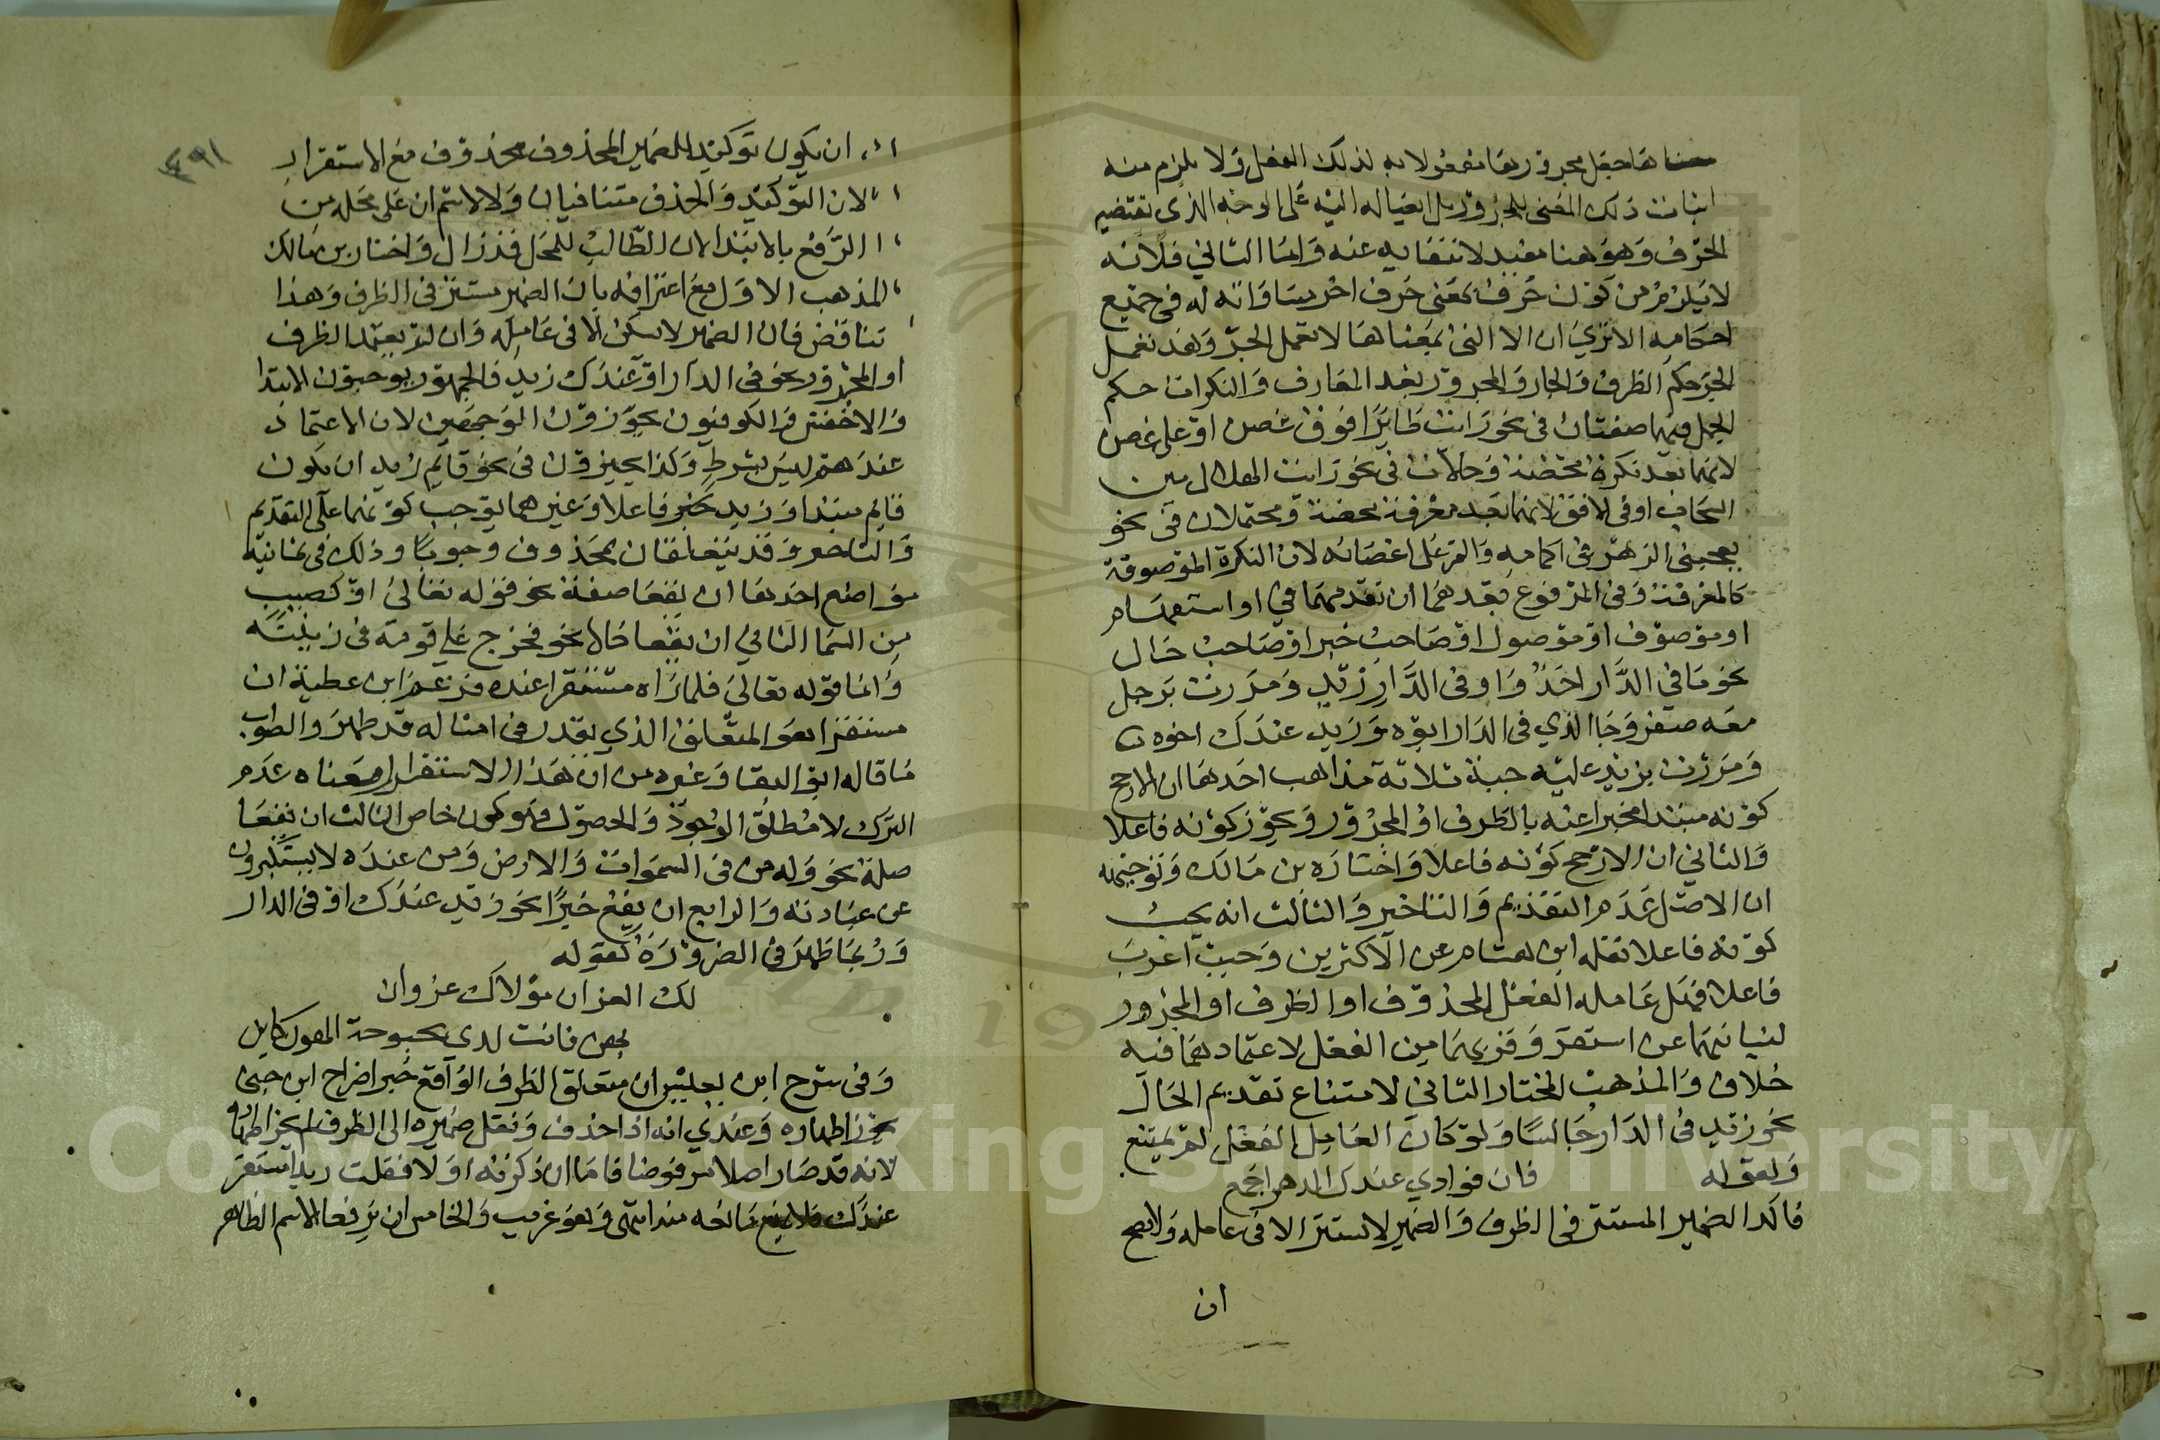 معناها جعل مجرورها مفعولا به لذلك الفعل ولا يلزم منه
اثبات ذلك المعنى للمجرور بل ايصاله اليه على الوجه الذي يقتضيه
الحرف وهو هنا مفيد لانتفايه عنه واما الثاني فلانه
لا يلزم من كون حرف بمعنى حرف اخر مساواته له في جميع
احكامه الا ترى ان الا التى بمعناها لا تعمل الجر وهذه تعمل
الجر حكم الظرف والجار والمجرور بعد المعارف والنكرات حكم
الجمل فهما صفتان في نحو رايت طايرا فوق غصن او على غصن
لانهما بعد نكرة محضة وحالان في نحو رايت الهلال بين
السحاب او في الافق لانهما بعد معرفة محضة ومحتملان في نحو
يعجبني الزهر في اكمامه والثمر على اغصانه لان النكرة الموصوفة
كالمعرفة وفي المرفوع بعدهما ان تقدمهما نفي او استفهام
او موصوف او موصول او صاحب خبر او صاحب حال
نحو ما في الدار احد و اوفى الدار زيد ومررت برجل
معه صقر وجا الذي في الدار ابوه وزيد عندك اخوه
ومررت بزيد عليه جبة ثلاثة مذاهب احدها ان الارجح
كونه مبتدا مخبرا عنه بالظرف او المجرور ويجوز كونه فاعلا
والثاني ان الارجح كونه فاعلا واختاره بن مالك وتوجيهه
ان الاصل عدم التقديم والتاخير والثالث انه يجب
كونه فاعلا نقله ابن هشام عن الاكثرين وحيث اعرب
فاعلا فهل عامله الفعل المحذوف او الظرف او المجرور
لنيابتهما عن استقر وقربهما من الفعل لاعتمادهما فيه
خلاف والمذهب المختار الثاني لامتناع تقديم الحال
نحو زيد في الدار جالسا ولو كان العامل الفعل لم يمتنع
ولقوله فان فوادي عندك الدهر اجمع
فاكد الضمير المستتر في الظرف والضمير لا يستتر الا في عامله ولا يصح
ان
٤٩١
ان يكون توكيدا للضمير المحذوف محذوف مع الاستقرار
لان التوكيد والحذف متنافيان ولا لاسم ان على محله من
الرفع بالابتدا لان الطالب للمحل قد زال واختار بن مالك
المذهب الاول مع اعترافه بان الضمير مستتر في الظرف وهذا
تناقض فان الضمير لا يسكن الا في عامله وان لم يعتمد الظرف
او المجرور نحو في الدار او عندك زيد فالجمهور يوجبون الابتدا
والاخفش والكوفيون يجوزون الوجهين لان الاعتماد
عندهم ليس بشرط وكذا يجيزون في نحو قايم زيد ان يكون
قايم مبتدا وزيد فاعلا وغيرهما يوجب كونهما على التقديم
والتاخير وقد يتعلقان بمحذوف وجوبا وذلك في ثمانية
مواضع احدها ان يقعا صفة نحو قوله تعالى او كصيب
من السما الثاني ان يقعا حالا نحو فخرج على قومه في زينته
واما قوله تعالى فلما راه مستقرا عنده فزعم ابن عطية ان
مستقرا هو المتعلق الذي يقدر في امثاله قد ظهر والصواب
ما قاله ابو البقا وغيره من ان هذا الاستقرار معناه عدم
التحرك لا مطلق الوجود والحصول فهو كون خاص الثالث ان يقعا
صلة نحو وله من في السموات والارض ومن عنده لا يستكبرون
عن عبادته والرابع ان يقع خبرا نحو زيد عندك او في الدار
وربما ظهر في الضرورة كقوله
لك العز ان مولاك عز وان
يهن فانت لدى بحبوحة الهون كاين
وفي شرح ابن يعيش ان متعلق الظرف الواقع خبرا صرح ابن جنى
بجواز اظهاره وعندي انه اذا حذف ونقل ضميره الى الظرف لم يجز اظهاره
لانه قد صار اصلا مرفوضا فاما ان ذكرته اولا فقلت زيد استقر
عندك فلا يمنع مانع منه انتهى وهو غريب والخامس ان يرفعا الاسم الظاهر
Copyright © King Saud University